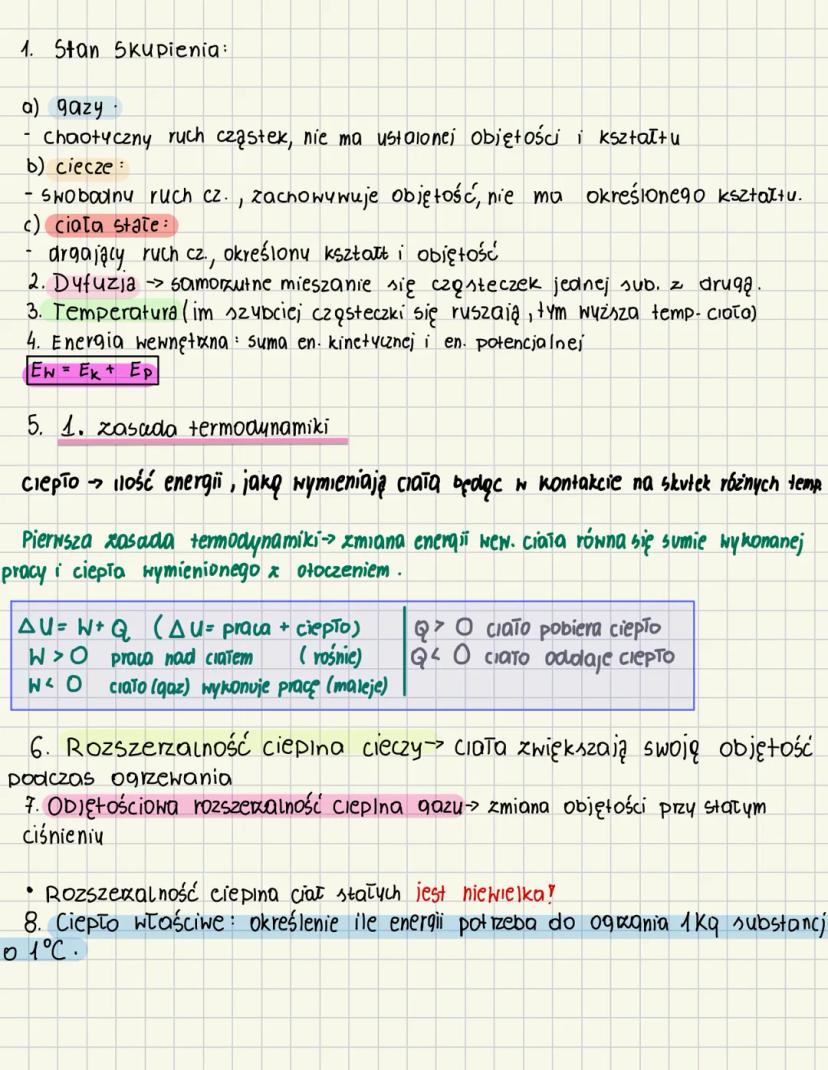 1. Stan skupienia:
a) gazy.
- chaotyczny ruch cząstek, nie ma ustalonej objętości i kształtu
b) ciecze:
- swobodny ruch cz., zachowywuje objętość, nie ma określonego kształtu.
c) ciała stałe:
- drgający ruch cz., określony kształt i objętość
2. Dyfuzja → samorzutne mieszanie się cząsteczek jednej sub. z drugą.
3. Temperatura (im szybciej cząsteczki się ruszają, tym wyższa temp. ciała)
4. Energia wewnętrzna: suma en. kinetycznej i en. potencjalnej
Ew = Ek + Ep
5. 1. zasada termodynamiki
ciepło → ilość energii, jaką wymieniają ciała będąc w kontakcie na skutek różnych temp
Pierwsza zasada termodynamiki → zmiana energii wew. ciała równa się sumie wykonanej
pracy i ciepła wymienionego z otoczeniem.
ΔU = W + Q (ΔU = praca + ciepło)
W > 0 praca nad ciałem (rośnie)
W < 0 ciało (gaz) wykonuje pracę (maleje)
Q > 0 ciało pobiera ciepło
Q < 0 ciało oddaje ciepło
6. Rozszerzalność cieplna cieczy → ciała zwiększają swoją objętość
podczas ogrzewania
7. Objętościowa rozszerzalność cieplna gazu → zmiana objętości przy stałym
ciśnieniu
• Rozszerzalność cieplna ciał stałych jest niewielka!
8. Ciepło właściwe: określenie ile energii potrzeba do ogrzania 1Kg substancj
o 1°C.